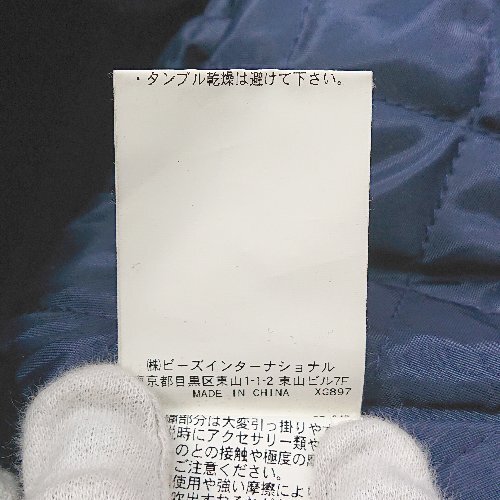 ・タンブル乾燥は避けて下さい。
㈱ビーズインターナショナル
東京都目黒区東山1-1-2 東山ビル7F
MADE IN CHINA XG897
部分は大変引っ掛りや
時にアクセサリー類や
のとの接触や極度の
ご注意ください。
使用や強い摩擦によ